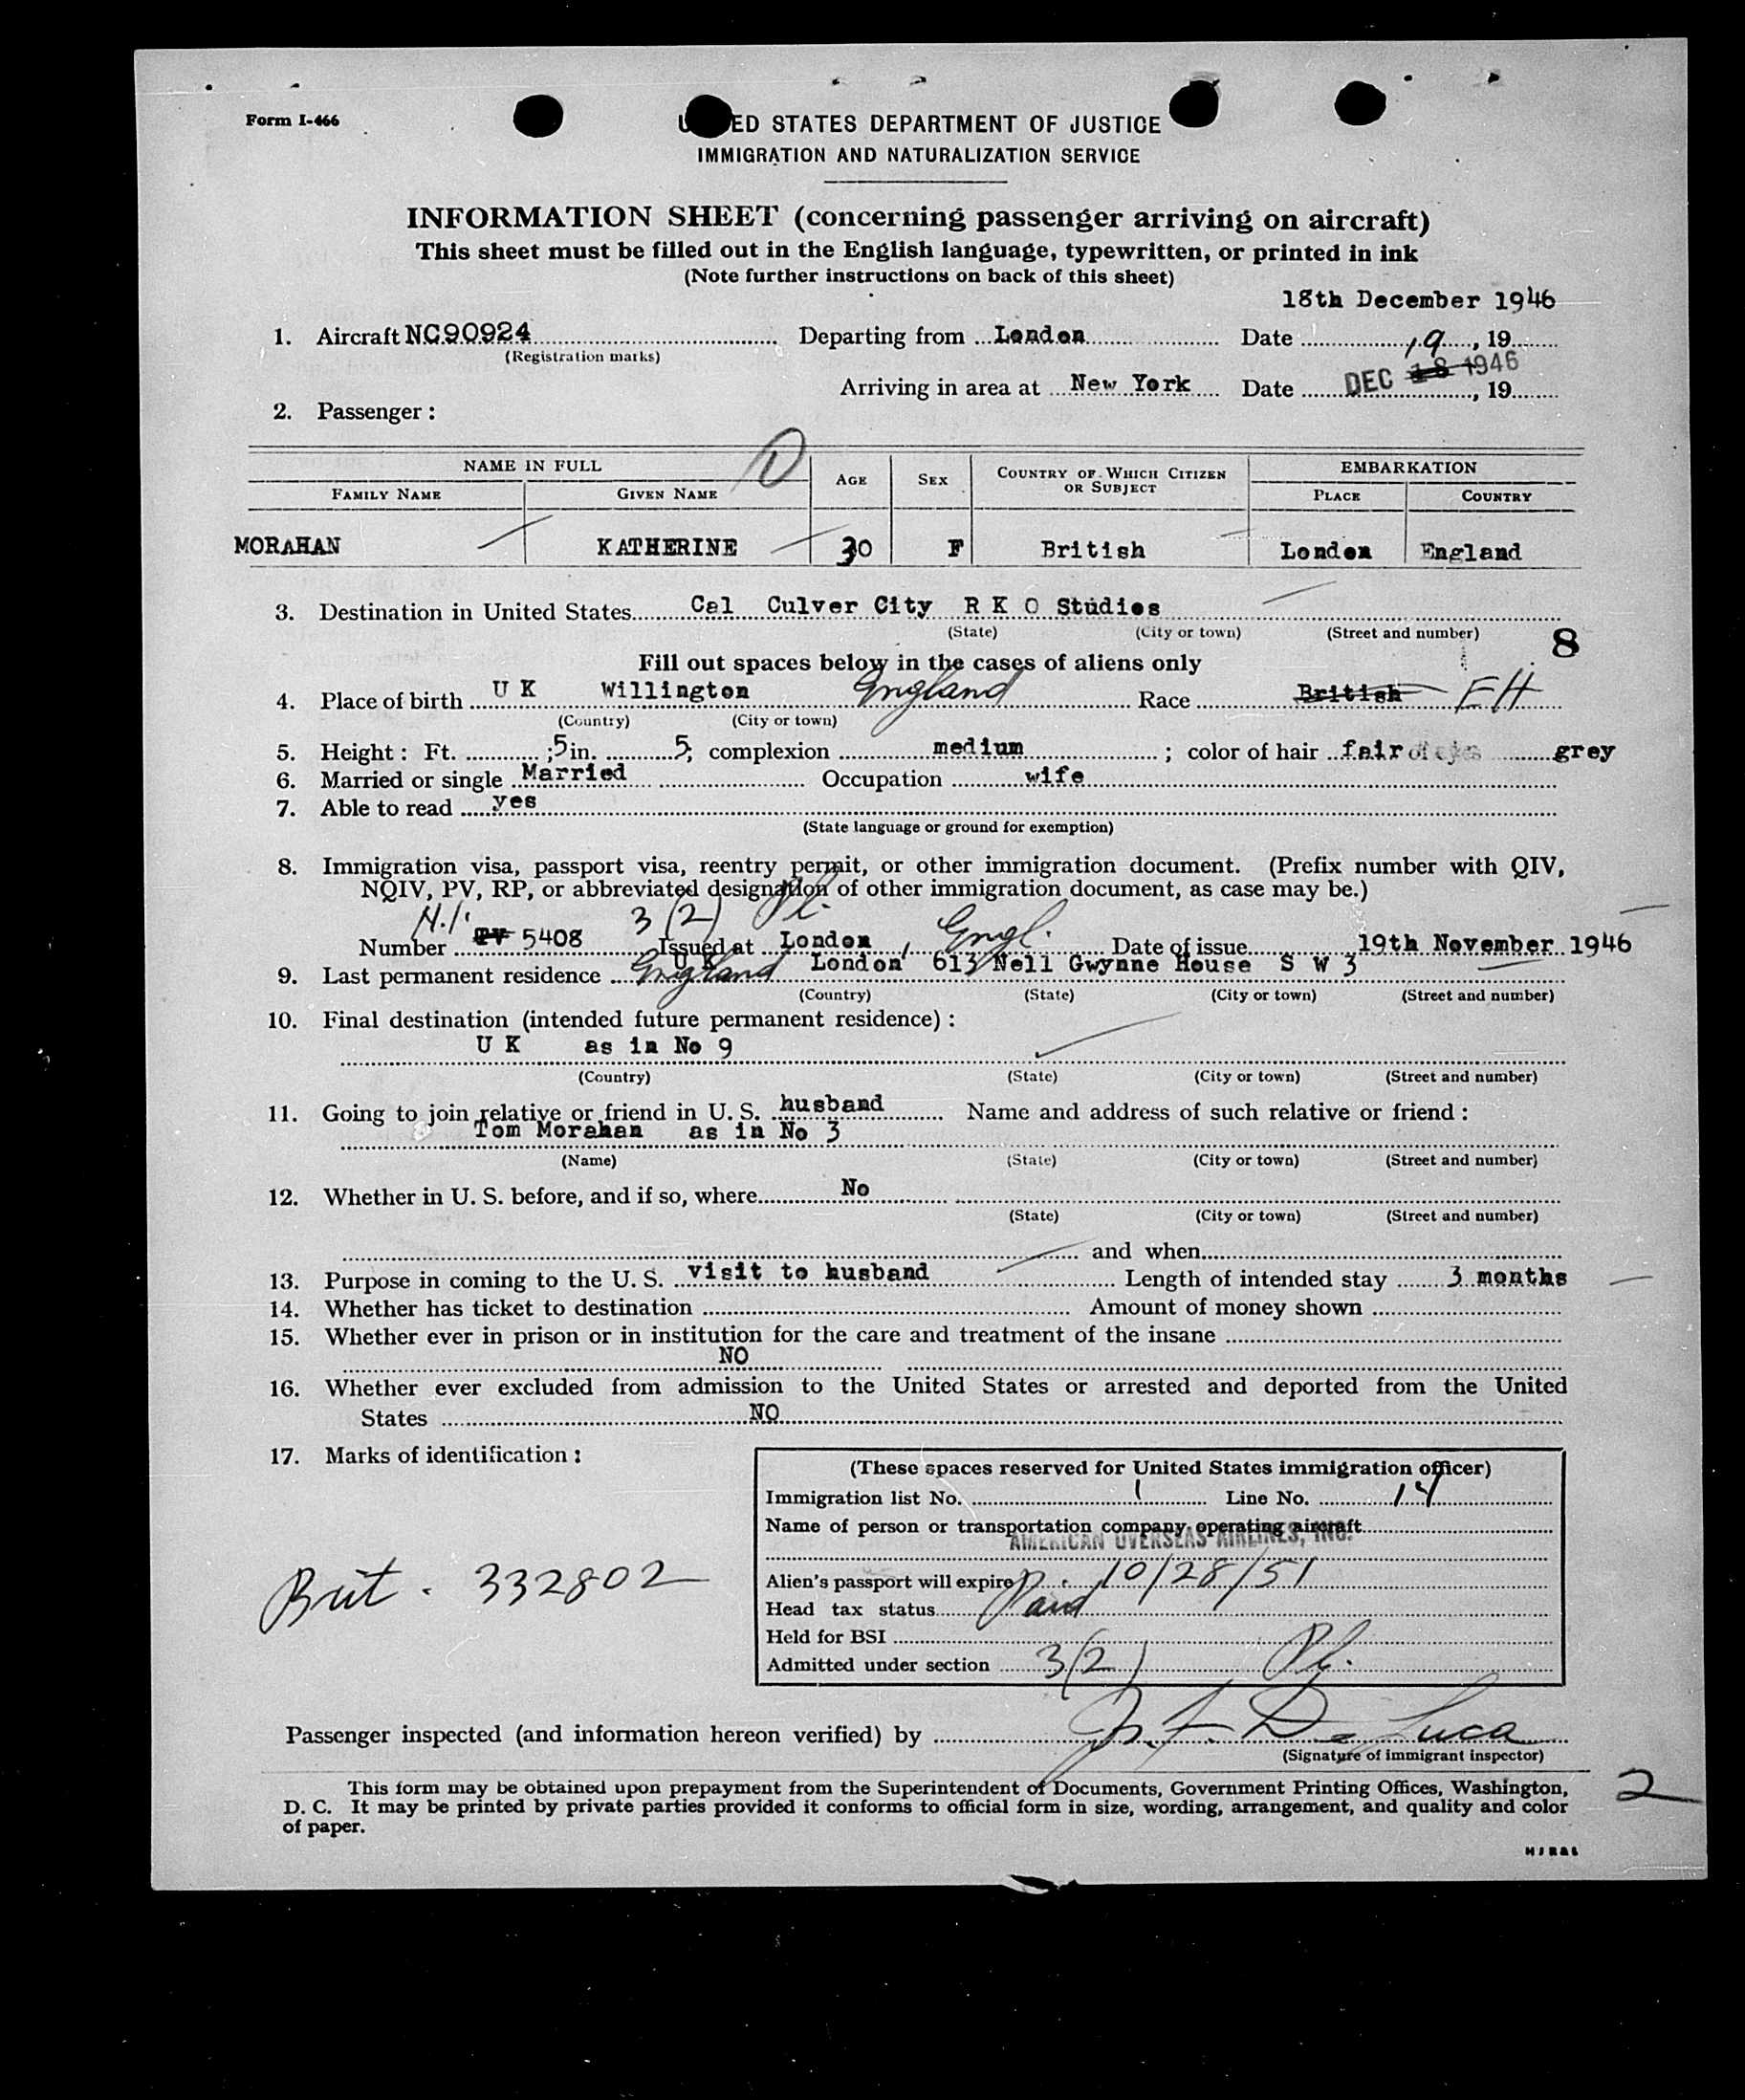 Form I-466
UNITED STATES DEPARTMENT OF JUSTICE
IMMIGRATION AND NATURALIZATION SERVICE
INFORMATION SHEET (concerning passenger arriving on aircraft)
This sheet must be filled out in the English language, typewritten, or printed in ink
(Note further instructions on back of this sheet)
18th December 1946
1. Aircraft NC90924 Departing from London Date , 19
(Registration marks)
19
Arriving in area at New York Date DEC 18 1946 , 19
2. Passenger:
NAME IN FULL AGE SEX COUNTRY OF WHICH CITIZEN OR SUBJECT EMBARKATION
FAMILY NAME GIVEN NAME PLACE COUNTRY
MORAHAN KATHERINE 30 F British London England
3. Destination in United States Cal Culver City R K O Studios
(State) (City or town) (Street and number)
8
Fill out spaces below in the cases of aliens only
4. Place of birth U K Willington England Race British EH
(Country) (City or town)
5. Height: Ft. ;5 in. 5; complexion medium ; color of hair fair of eyes grey
6. Married or single Married Occupation wife
7. Able to read yes
(State language or ground for exemption)
8. Immigration visa, passport visa, reentry permit, or other immigration document. (Prefix number with QIV,
NQIV, PV, RP, or abbreviated designation of other immigration document, as case may be.)
3 (2) Pl.
Number PV 5408 Issued at London, Engl. Date of issue 19th November 1946
9. Last permanent residence England U K London 613 Nell Gwynne House S W 3
(Country) (State) (City or town) (Street and number)
10. Final destination (intended future permanent residence):
U K as in No 9
(Country) (State) (City or town) (Street and number)
11. Going to join relative or friend in U. S. husband Name and address of such relative or friend:
Tom Morahan as in No 3
(Name) (State) (City or town) (Street and number)
12. Whether in U. S. before, and if so, where No
(State) (City or town) (Street and number)
and when
13. Purpose in coming to the U. S. visit to husband Length of intended stay 3 months
14. Whether has ticket to destination Amount of money shown
15. Whether ever in prison or in institution for the care and treatment of the insane
NO
16. Whether ever excluded from admission to the United States or arrested and deported from the United
States NO
17. Marks of identification:
(These spaces reserved for United States immigration officer)
Immigration list No. 1 Line No. 14
Name of person or transportation company operating aircraft
AMERICAN OVERSEAS AIRLINES, INC.
Brit. 332802
Alien's passport will expire 10/28/51
Head tax status Paid
Held for BSI
Admitted under section 3(2) Pl.
Passenger inspected (and information hereon verified) by F. De Luca
(Signature of immigrant inspector)
This form may be obtained upon prepayment from the Superintendent of Documents, Government Printing Offices, Washington,
D. C. It may be printed by private parties provided it conforms to official form in size, wording, arrangement, and quality and color
of paper.
2